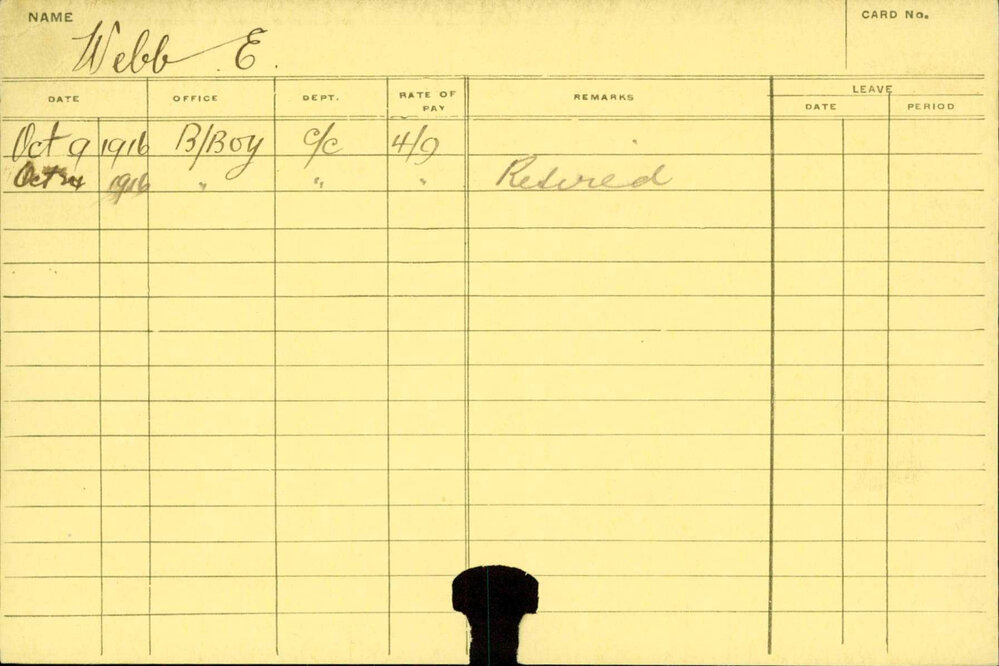 NAME
CARD No.
Webb E.
DATE OFFICE DEPT. RATE OF PAY REMARKS LEAVE DATE PERIOD
Oct 9 1916 B/Boy c/c 4/9
Oct 24 1916 " " " Retired